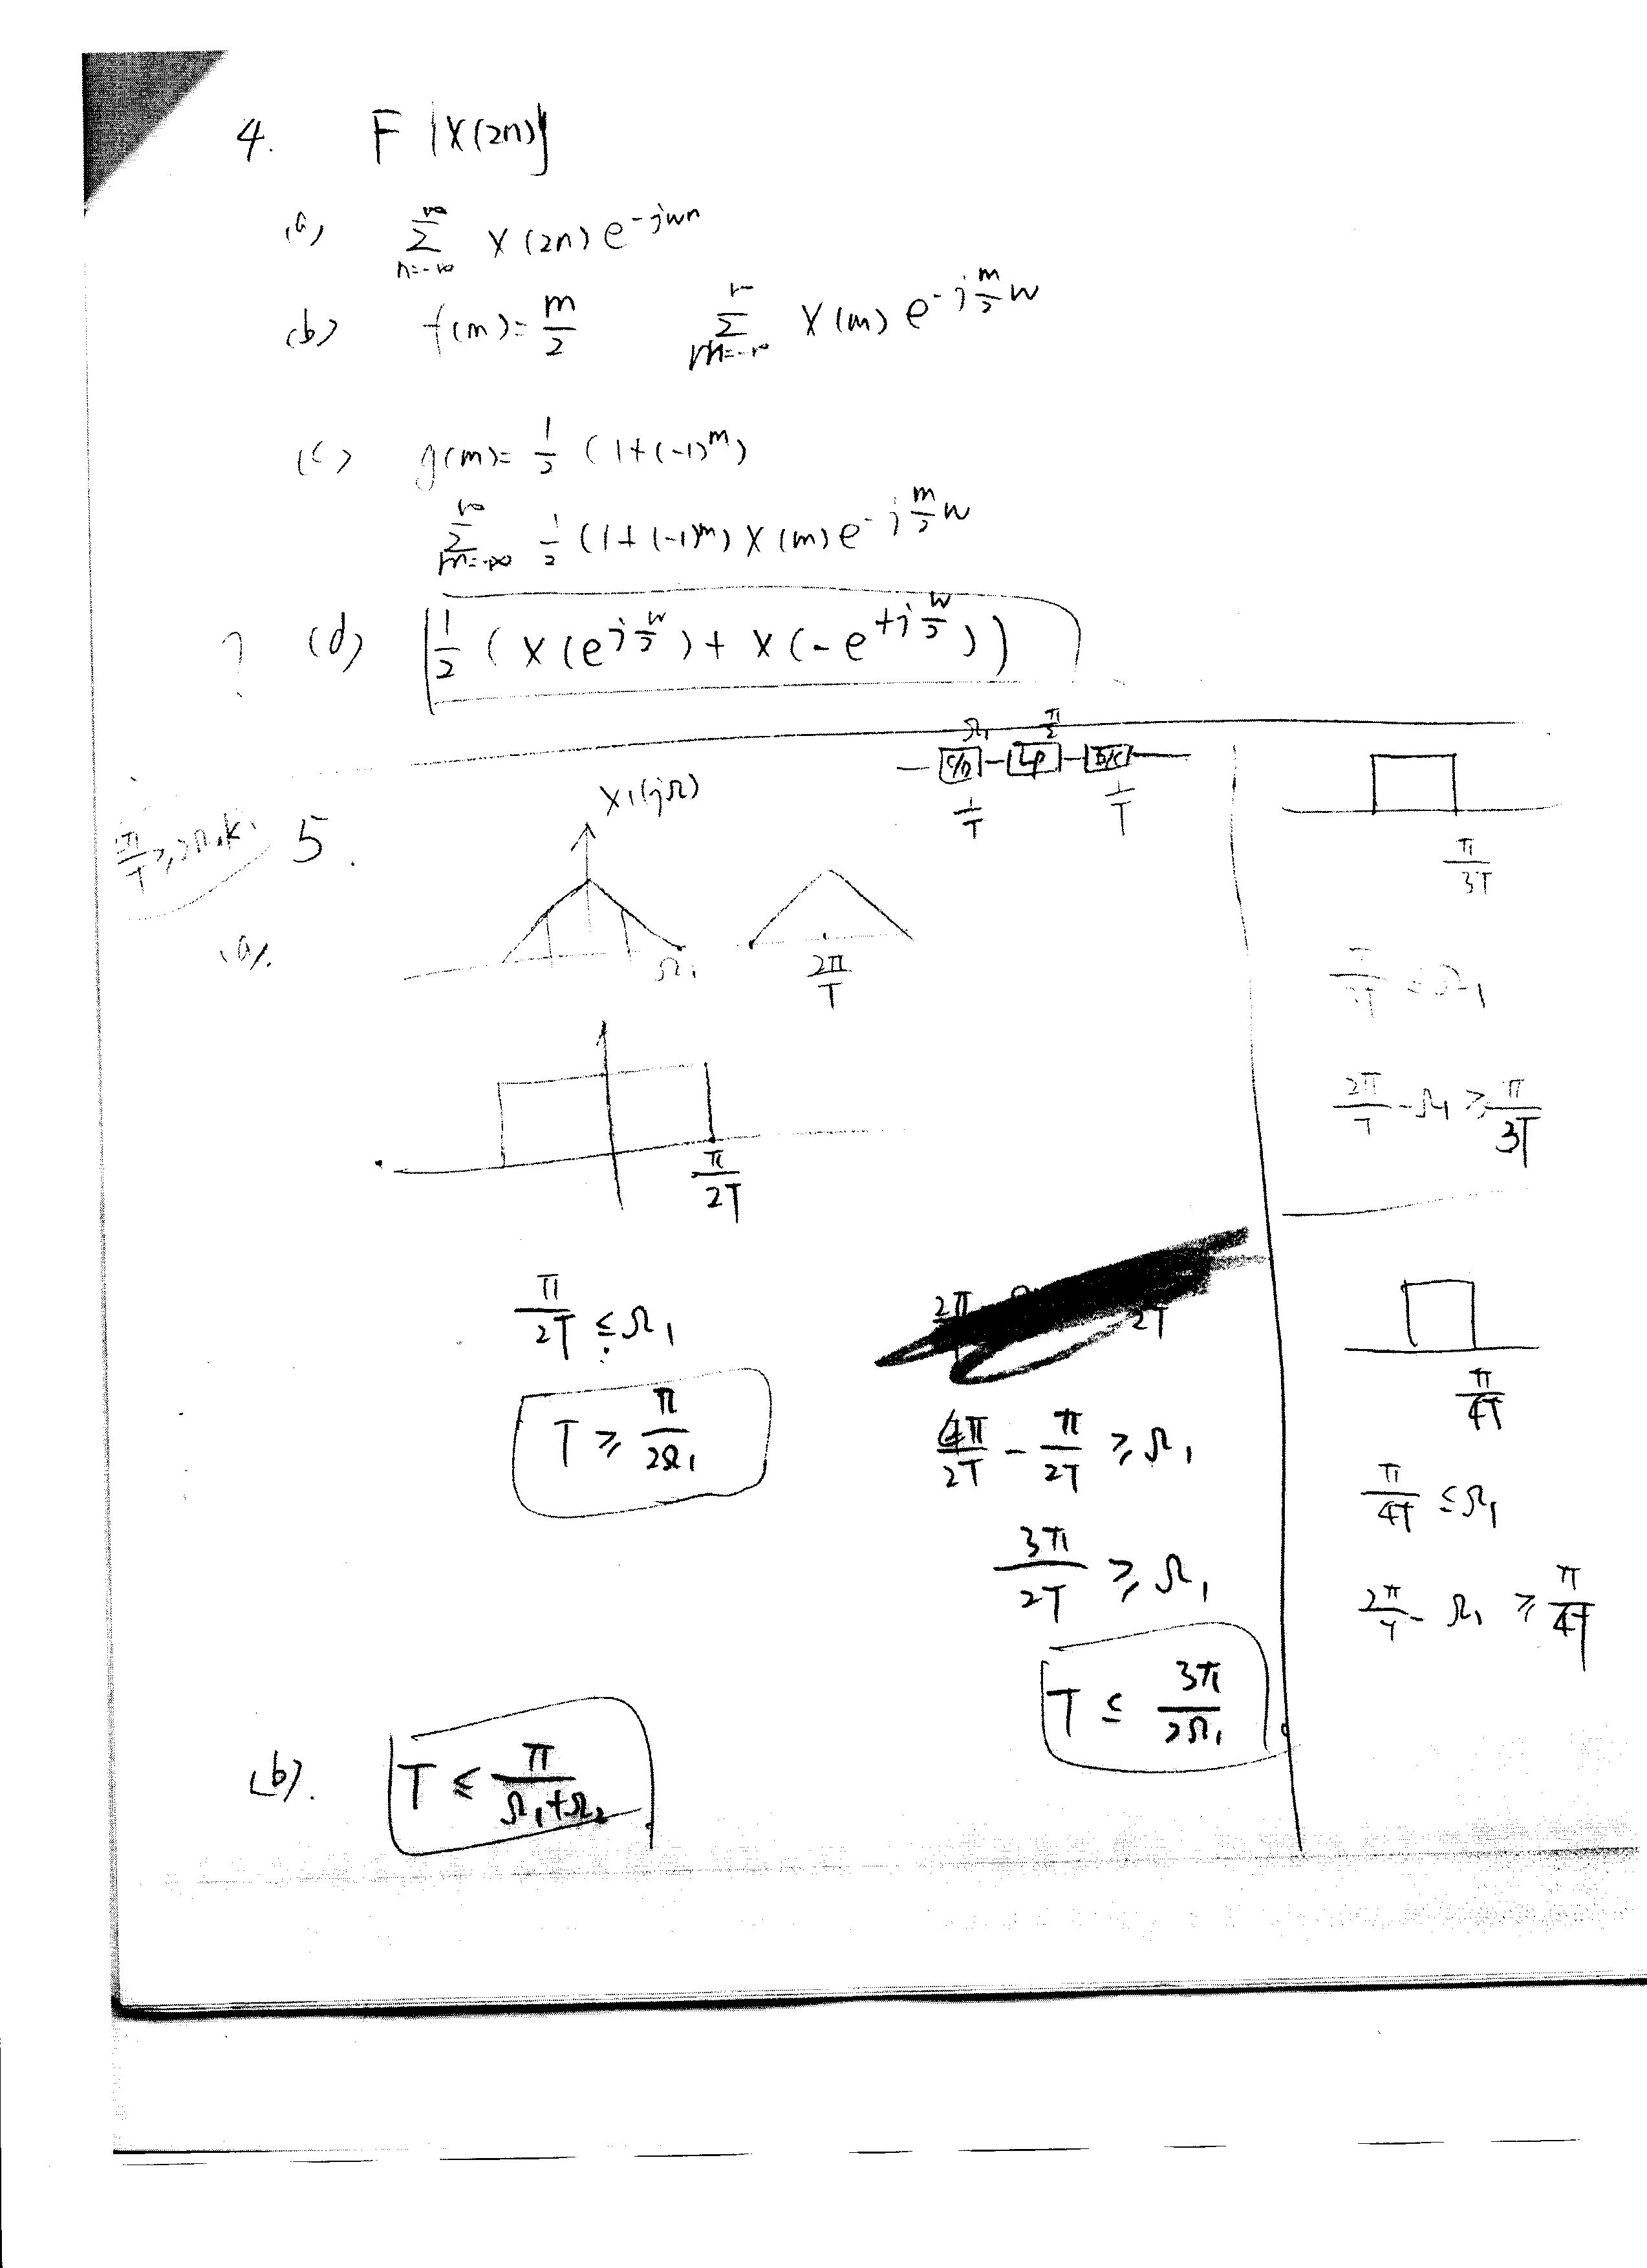 4. F{x(2n)}
(a) ∑_{n=-∞}^{∞} x(2n) e^{-jwn}
(b) f(m) = m/2   ∑_{m=-∞}^{∞} x(m) e^{-j(m/2)w}
(c) g(m) = 1/2 (1+(-1)^m)
∑_{m=-∞}^{∞} 1/2 (1+(-1)^m) x(m) e^{-j(m/2)w}
? (d) 1/2 (X(e^{j(w/2)}) + X(-e^{+j(w/2)}))
Ω₁   π/2
C/D   LP   D/C
1/T   1/T
5.
X₁(jΩ)
(a).
Ω₁   2π/T
π/2T
π/2T ≤ Ω₁
T ≥ π/2Ω₁
4π/2T - π/2T ≥ Ω₁
3π/2T ≥ Ω₁
T ≤ 3π/2Ω₁
(b). T ≤ π/(Ω₁+Ω₂)
π/3T
π/3T ≤ Ω₁
2π/T - Ω₁ ≥ π/3T
π/4T
π/4T ≤ Ω₁
2π/T - Ω₁ ≥ π/4T